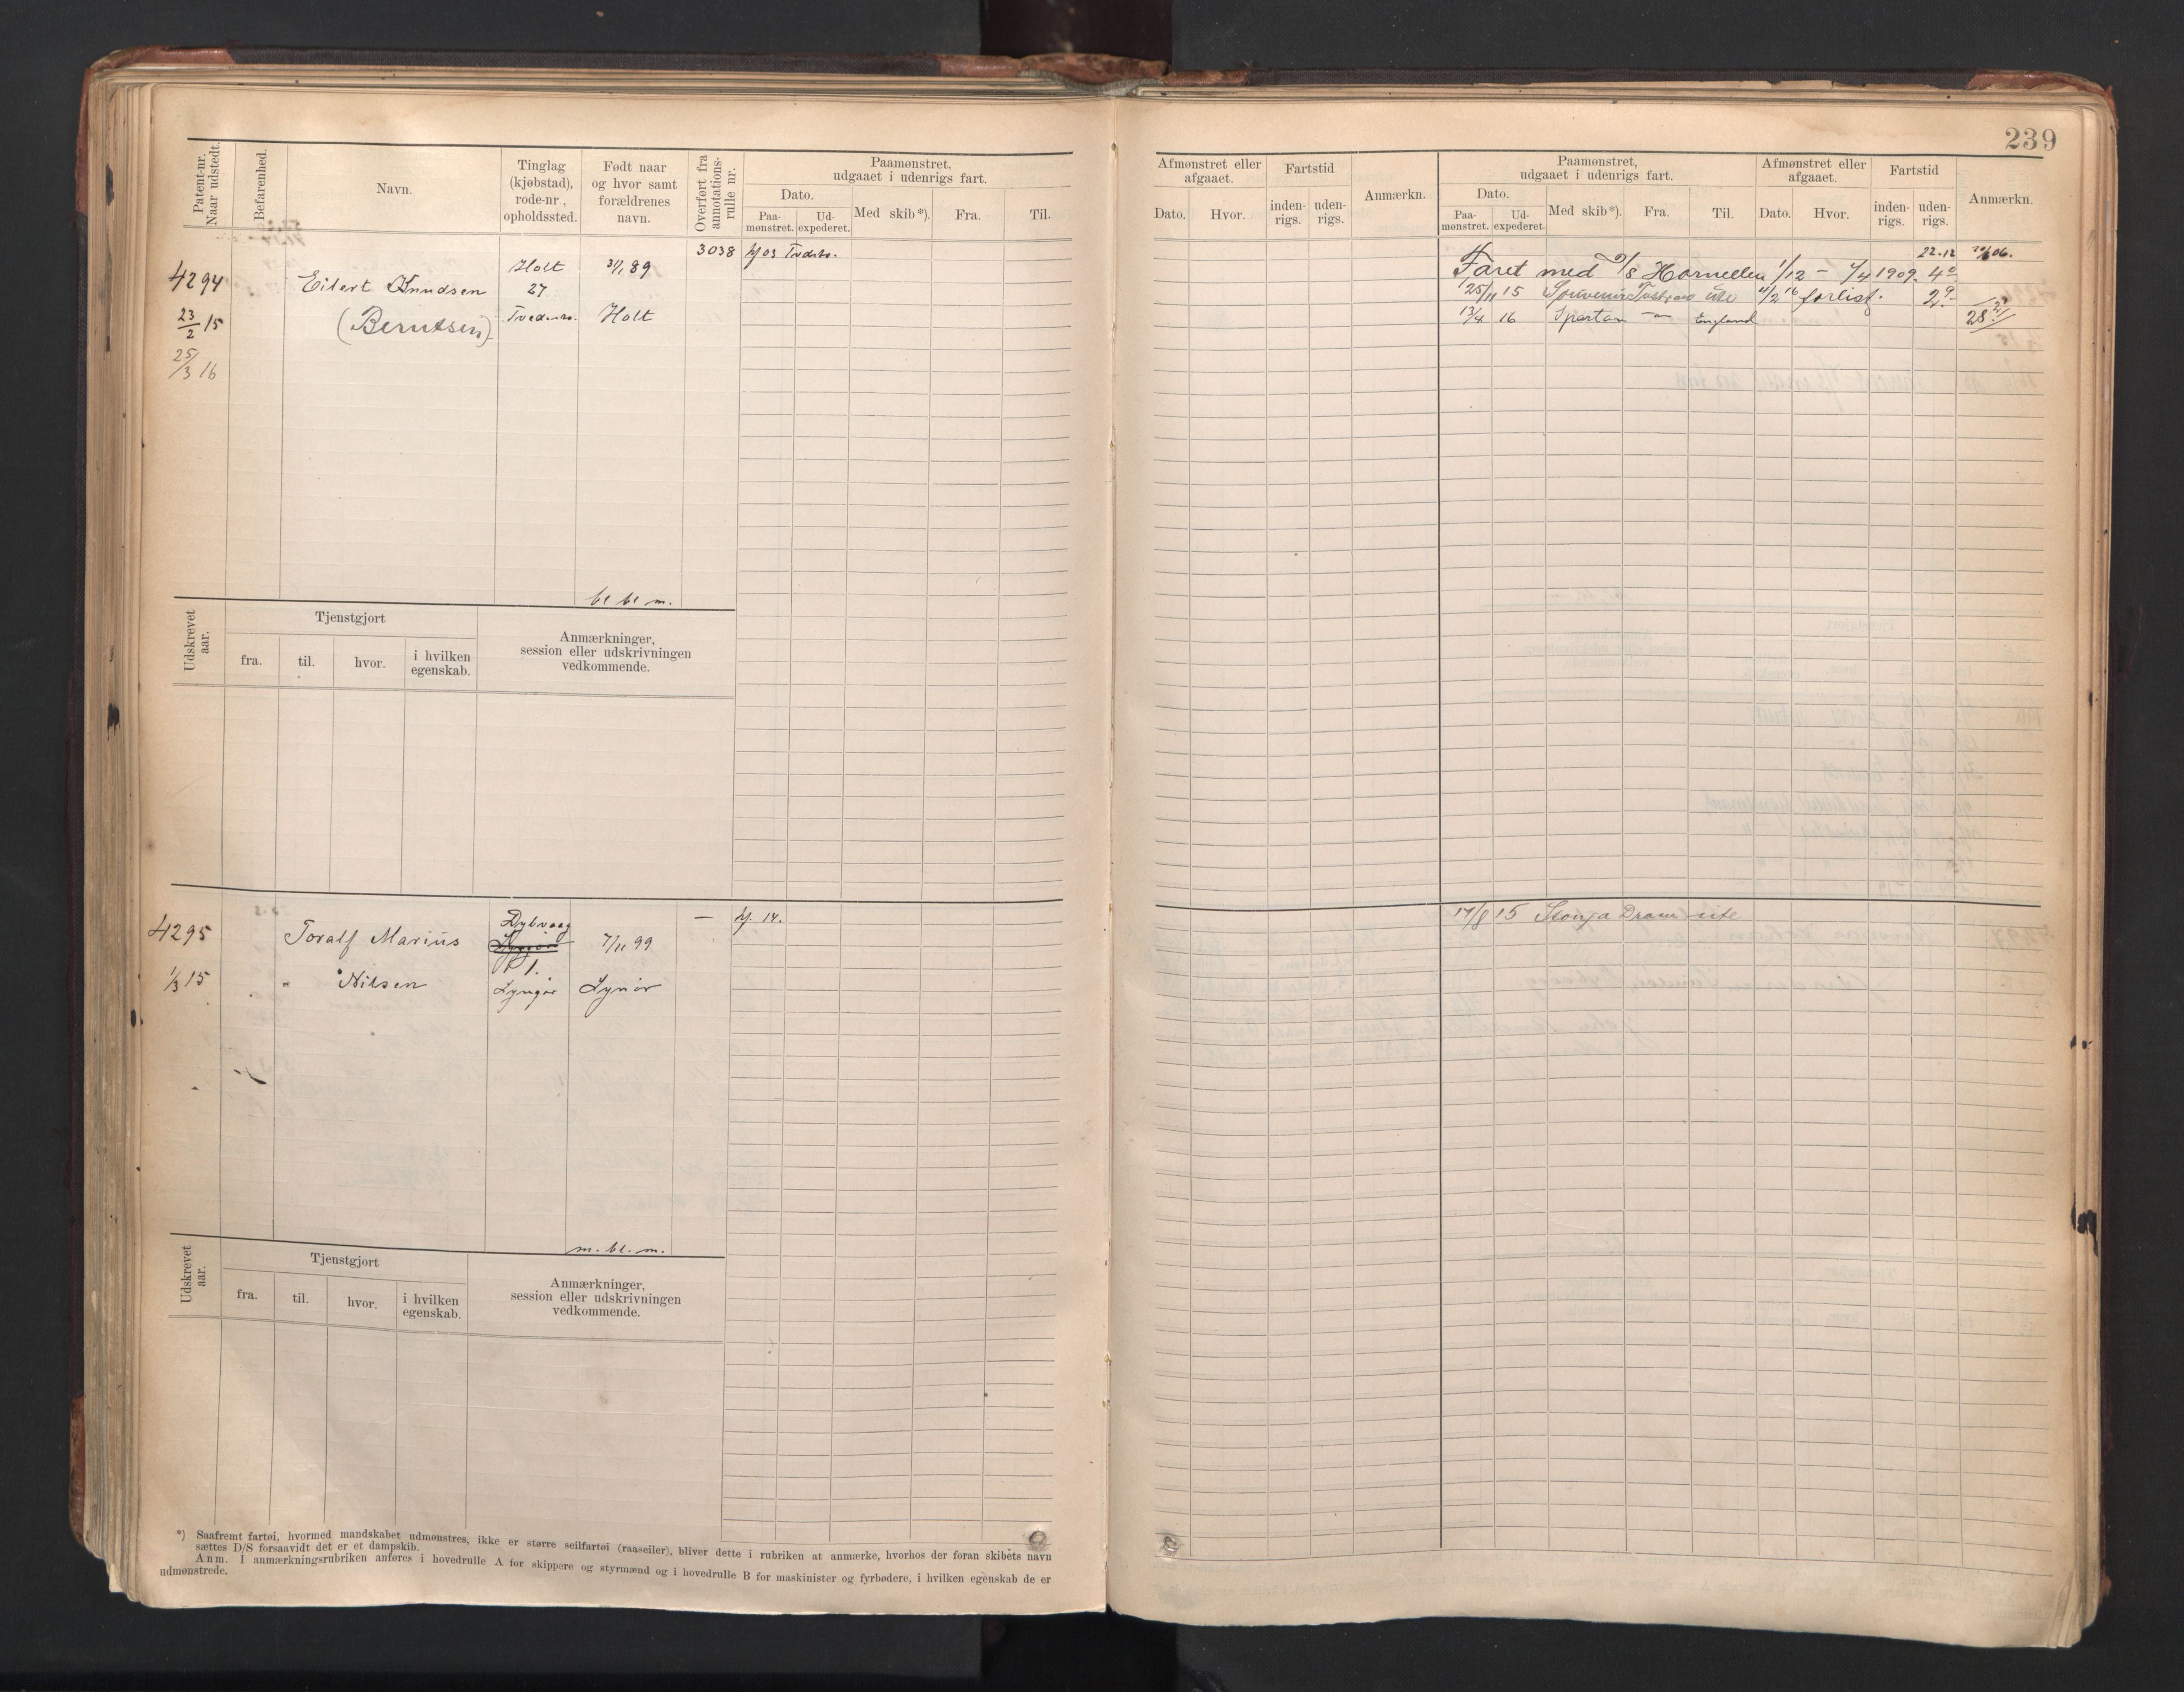 239
Patent-nr. Naar udstedt.
Befarenhed.
Navn.
Tinglag (kjøbstad), rode-nr., opholdssted.
Født naar og hvor samt forældrenes navn.
Overført fra annotations-rulle nr.
Paamønstret, udgaaet i udenrigs fart.
Dato.
Paa-mønstret.
Ud-expederet.
Med skib*).
Fra.
Til.
Afmønstret eller afgaaet.
Dato.
Hvor.
Fartstid
inden-rigs.
uden-rigs.
Anmærkn.
Paamønstret, udgaaet i udenrigs fart.
Dato.
Paa-mønstret.
Ud-expederet.
Med skib*).
Fra.
Til.
Afmønstret eller afgaaet.
Dato.
Hvor.
Fartstid
inden-rigs.
uden-rigs.
Anmærkn.
4294
23/2 15
25/3 16
Eilert Knudsen
(Berntsen)
Holt
27
Tvedestr.
31/1 89
Holt
3038
03 Tvedestr.
22.12
06.
Faret med D/S Hornelen 1/12 - 7/4 1909.
25/11 15 Souvenir ute 16 forlist.
13/4 16 Spartan England
bl bl m.
Udskrevet aar.
Tjenstgjort
fra.
til.
hvor.
i hvilken egenskab.
Anmærkninger, session eller udskrivningen vedkommende.
4295
1/3 15
Toralf Marius
" Nilsen
Dybvaag
1.
Lyngør
7/11 99
Lynør
—
14.
17/8 15 Dram ute
m. bl. m.
Udskrevet aar.
Tjenstgjort
fra.
til.
hvor.
i hvilken egenskab.
Anmærkninger, session eller udskrivningen vedkommende.
*) Saafremt fartøi, hvormed mandskabet udmønstres, ikke er større seilfartøi (raaseiler), bliver dette i rubriken at anmærke, hvorhos der foran skibets navn
sættes D/S forsaavidt det er et dampskib.
Anm. I anmærkningsrubriken anføres i hovedrulle A for skippere og styrmænd og i hovedrulle B for maskinister og fyrbødere, i hvilken egenskab de er
udmønstrede.